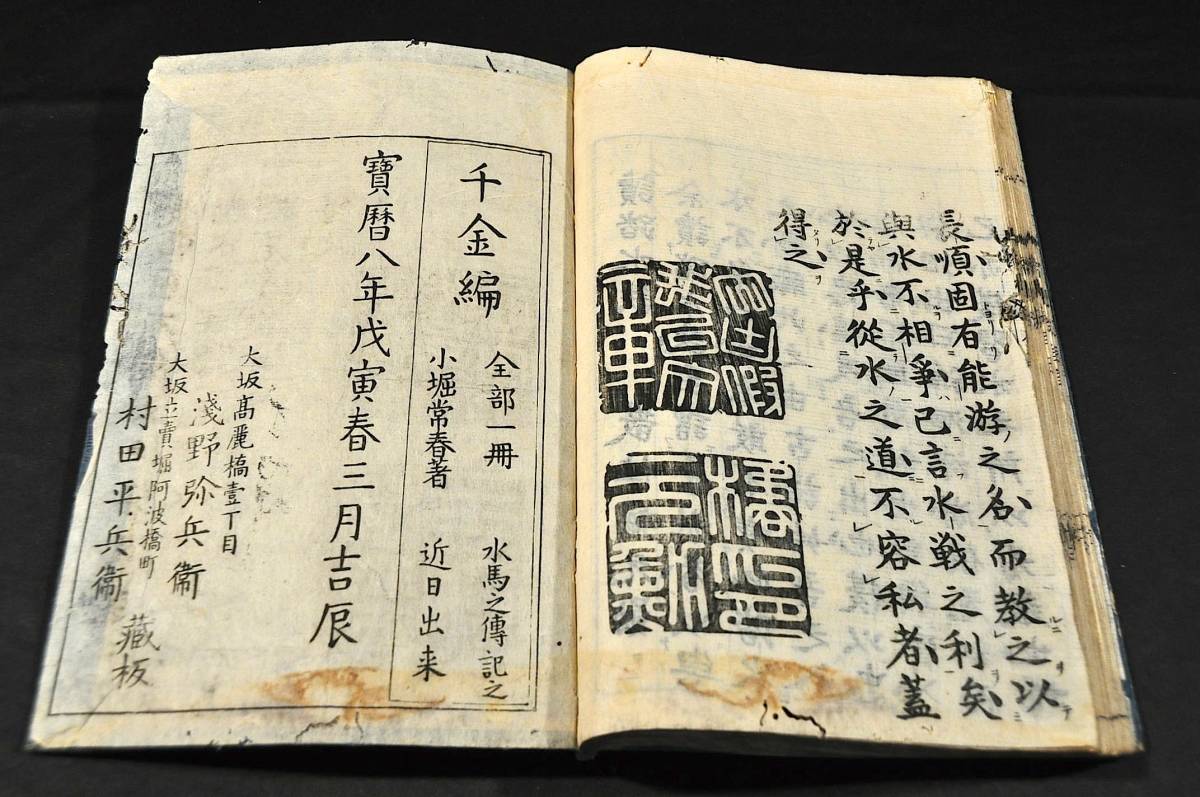 長順固有能游之名而教之以
與水不相爭已言水戰之利矣
於是乎從水之道不容私者蓋
得之
千金編
全部一冊 水馬之傳記之
小堀常春著 近日出来
寶暦八年戊寅春三月吉辰
大坂高麗橋壹丁目
淺野弥兵衞
大坂立賣堀阿波橋町
村田平兵衞 藏板